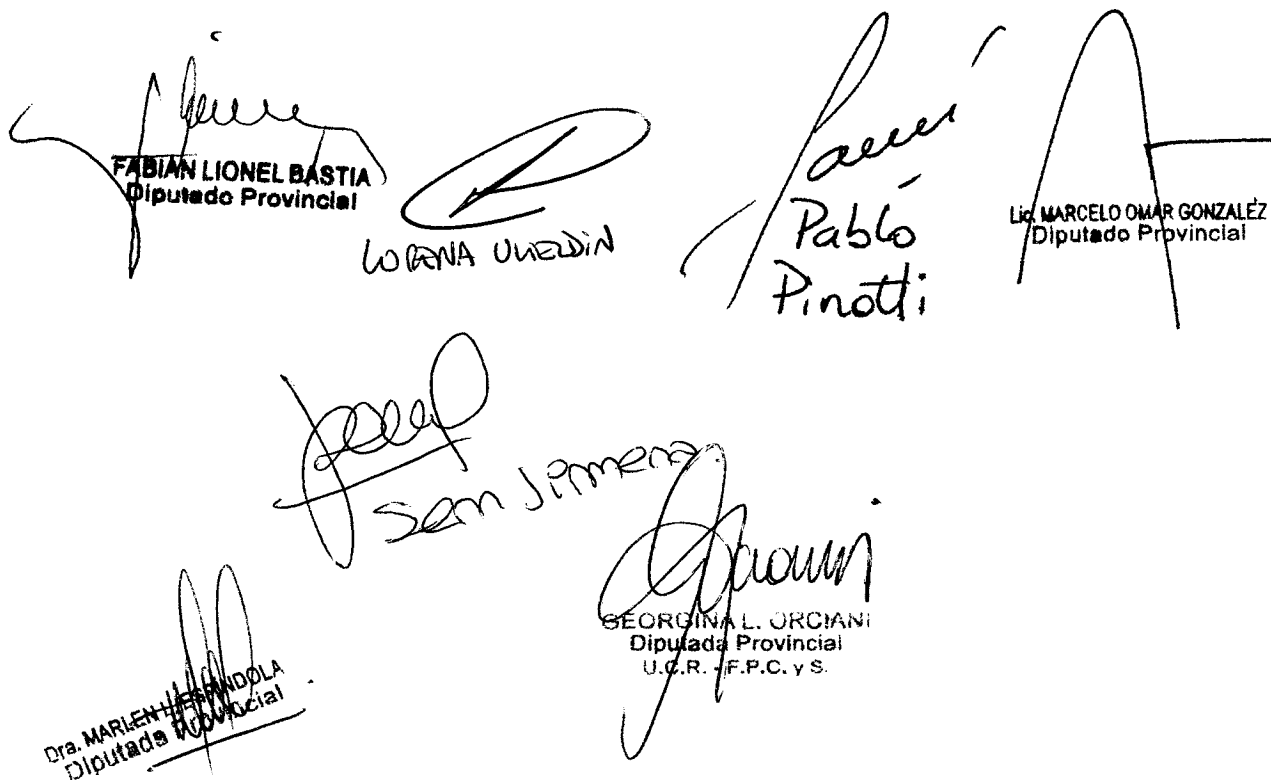 FABIAN LIONEL BASTIA
Diputado Provincial
LORENA ULIELDIN
Pablo
Pinotti
Lic. MARCELO OMAR GONZALEZ
Diputado Provincial
Senn Jimena
GEORGINA L. ORCIANI
Diputada Provincial
U.C.R. - F.P.C. y S.
Dra. MARLEN I. ESPINDOLA
Diputada Provincial